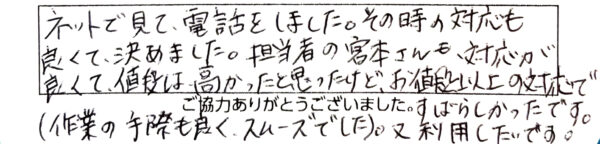 ネットで見て、電話をしました。その時の対応も
良くて、決めました。担当者の宮本さんも、対応が
良くて、値段は高かったと思ったけど、お値段以上の対応で
ご協力ありがとうございました。すばらしかったです。
(作業の手際も良く、スムーズでした)。又利用したいです。